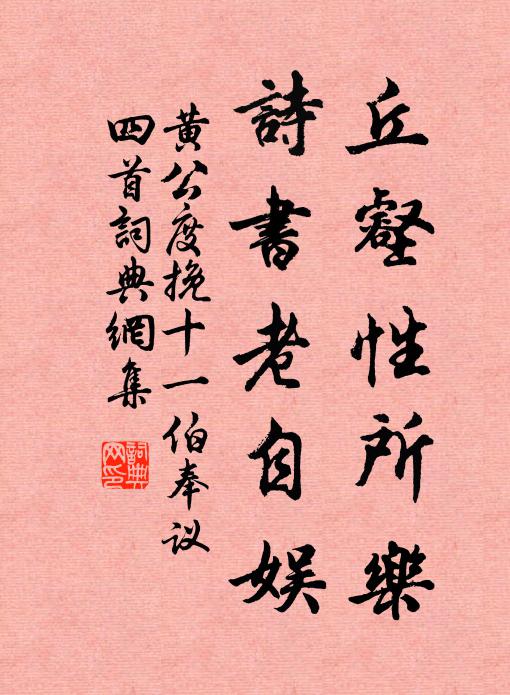 丘壑性所樂
詩書老自娛
黄公度挽十一伯奉议
四首詞典網集
詞典网印